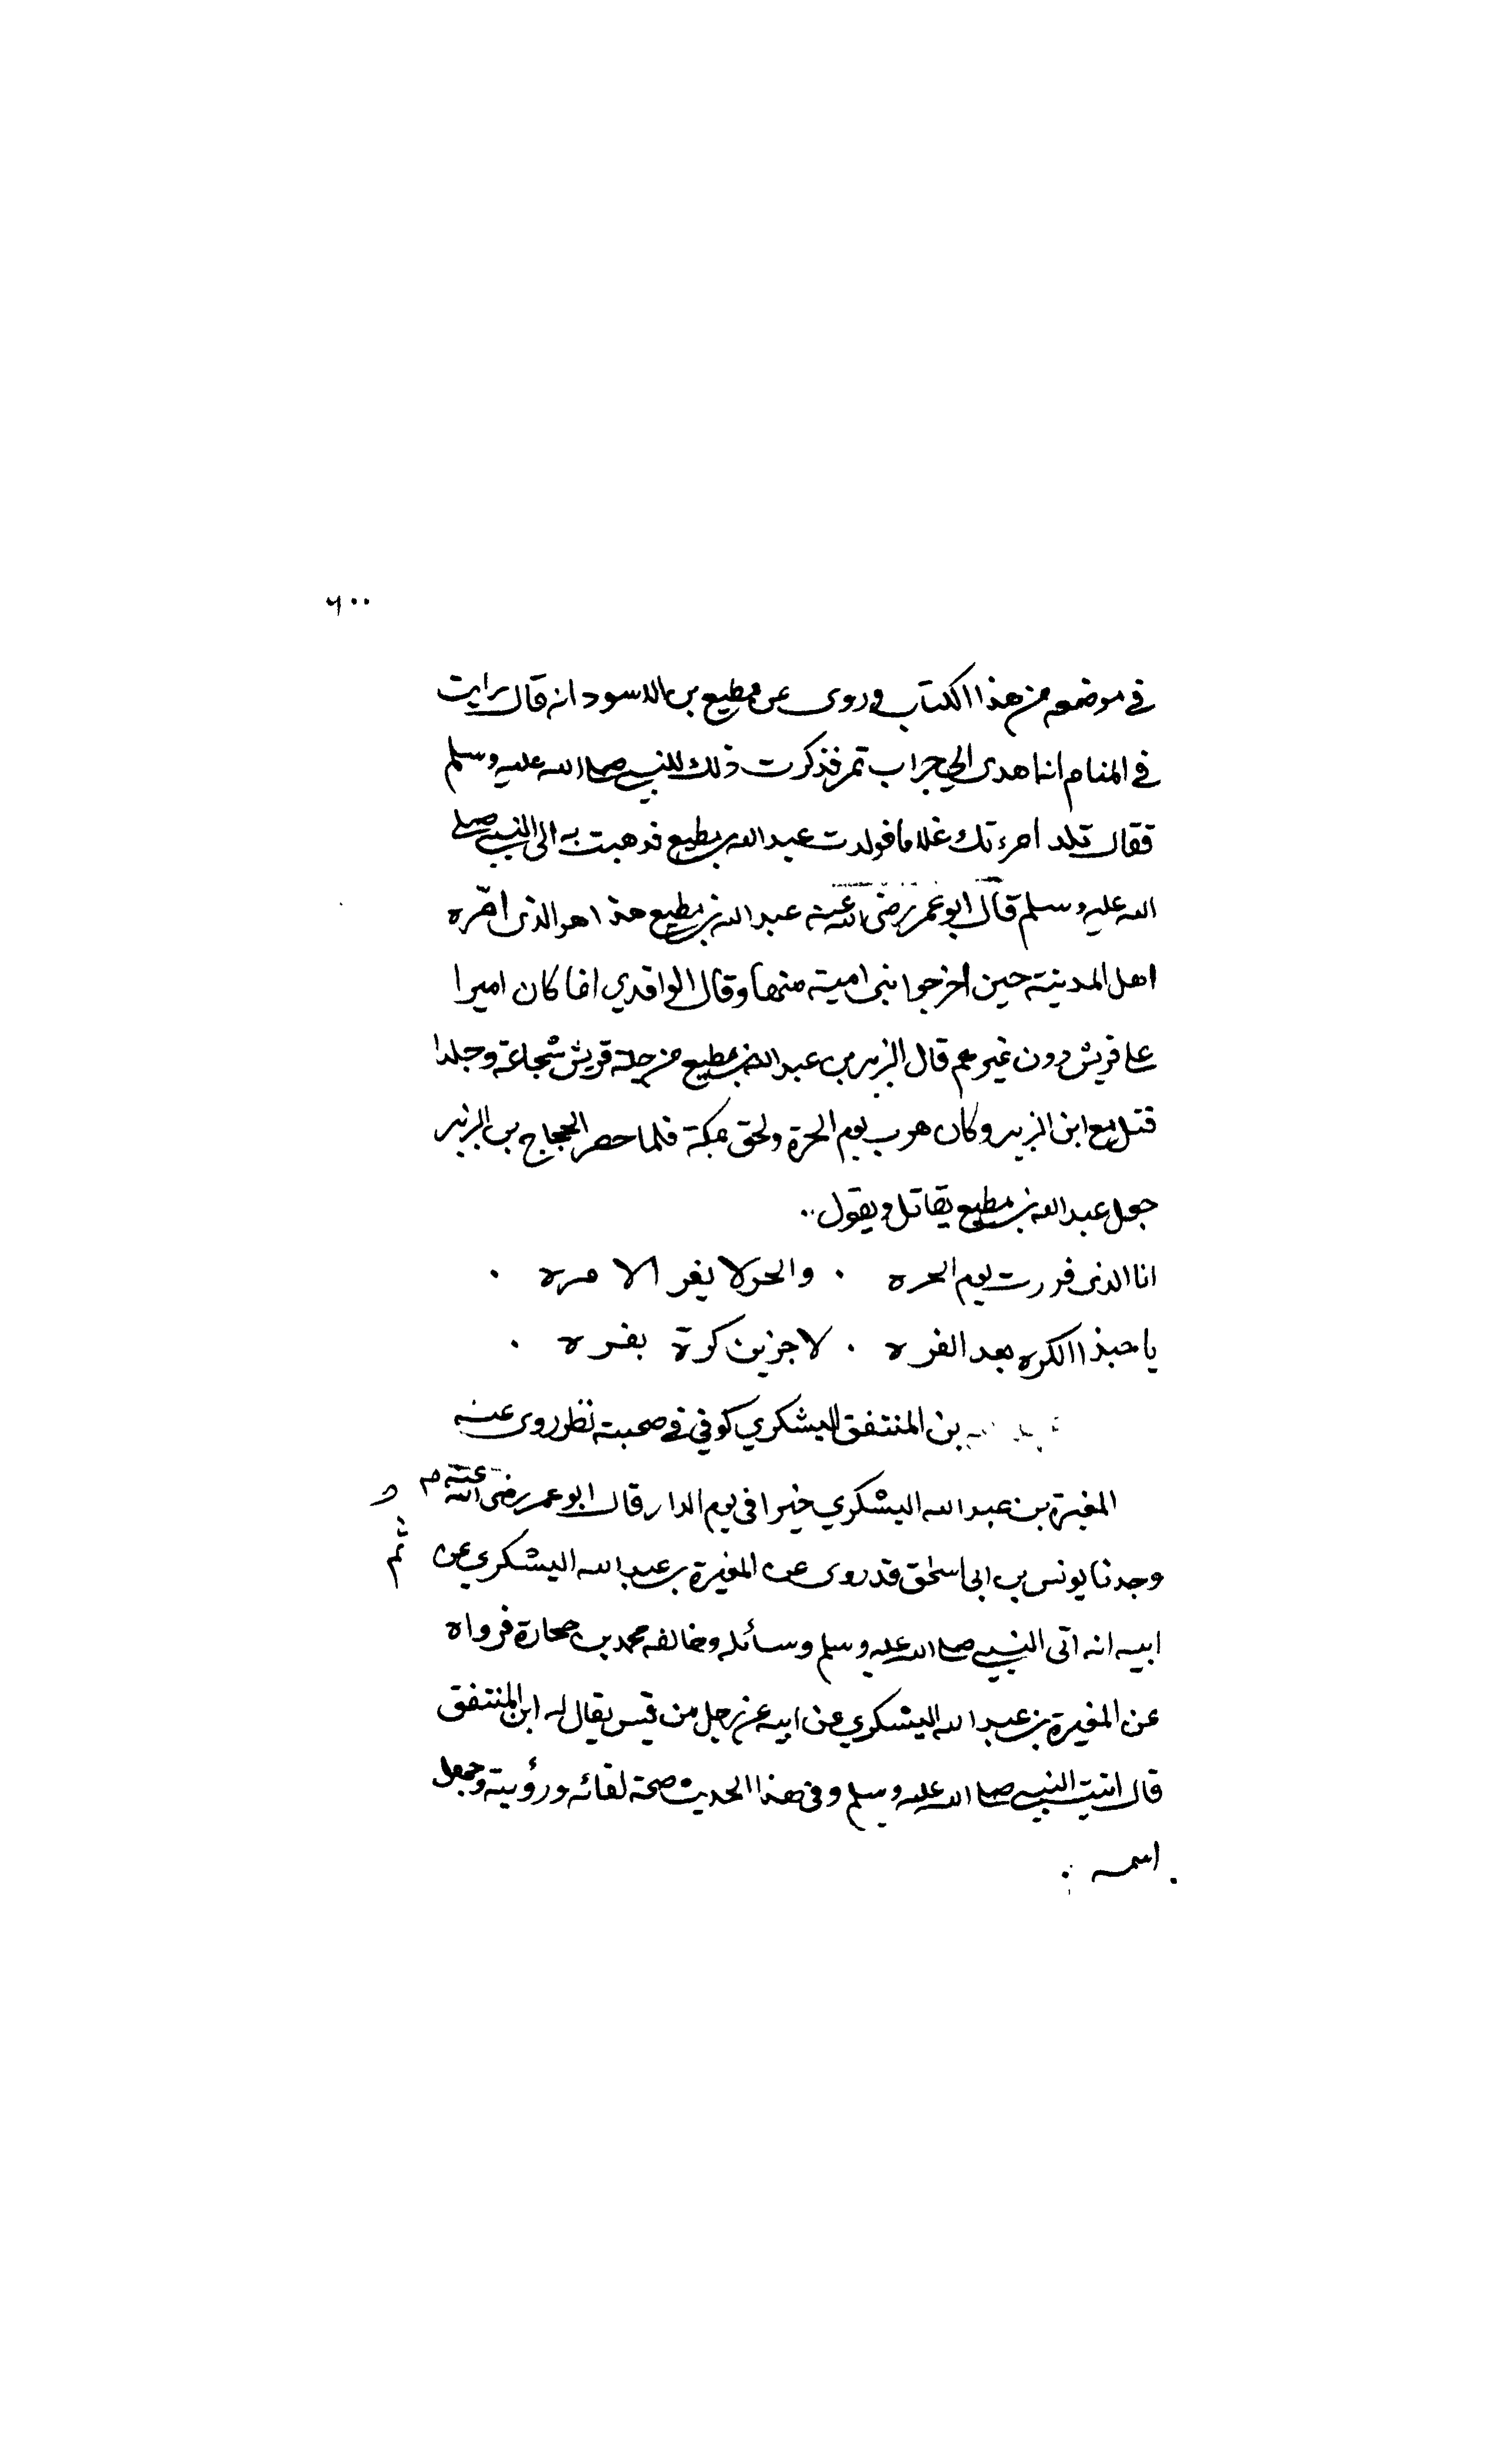 ٦٠٠
في موضعه من هذا الكتاب وروى عن مطيع بن الاسود انه قال رايت
في المنام انه اهدى الي جراب تمر فذكرت ذلك للنبي صلى الله عليه وسلم
فقال تلد امرءتك غلاما فولدت عبد الله بن مطيع فذهبت به الى النبي صلى
الله عليه وسلم قال ابو عمر رضى الله عنه عبد الله بن مطيع هذا هو الذى امّره
اهل المدينة حين اخرجوا بنى امية منها وقال الواقدي انما كان اميرا
على قريش دون غيرهم قال الزبير بن عبد الله بن مطيع من جلة قريش شجاعة وجلدا
قتل مع ابن الزبير وكان هرب يوم الحرة ولحق بمكة فلما حصر الحجاج بن الزبير
جعل عبد الله بن مطيع يقاتل ويقول
انا الذى فررت يوم الحره . والحر لا يفر الا مره .
يا حبذا الكره بعد الفره . لاجزين كرة بفره .
بن المنتفق اليشكري كوفي في صحبته نظر روى عنه
المغيرة بن عبد الله اليشكري خبرا فى يوم الدار قال ابو عمر رضى الله عنه م
وجدنا يونس بن ابى اسحق قد روى عن المغيرة بن عبد الله اليشكري عن
ابيه انه اتى النبي صلى الله عليه وسلم وسائله وخالفه محمد بن جحادة فرواه
عن المغيرة بن عبد الله اليشكري عن ابيه عن رجل من قيس يقال له ابن المنتفق
قال اتيت النبي صلى الله عليه وسلم وفى هذا الحديث صحة لقائه ورؤيته وجعل
اسمه